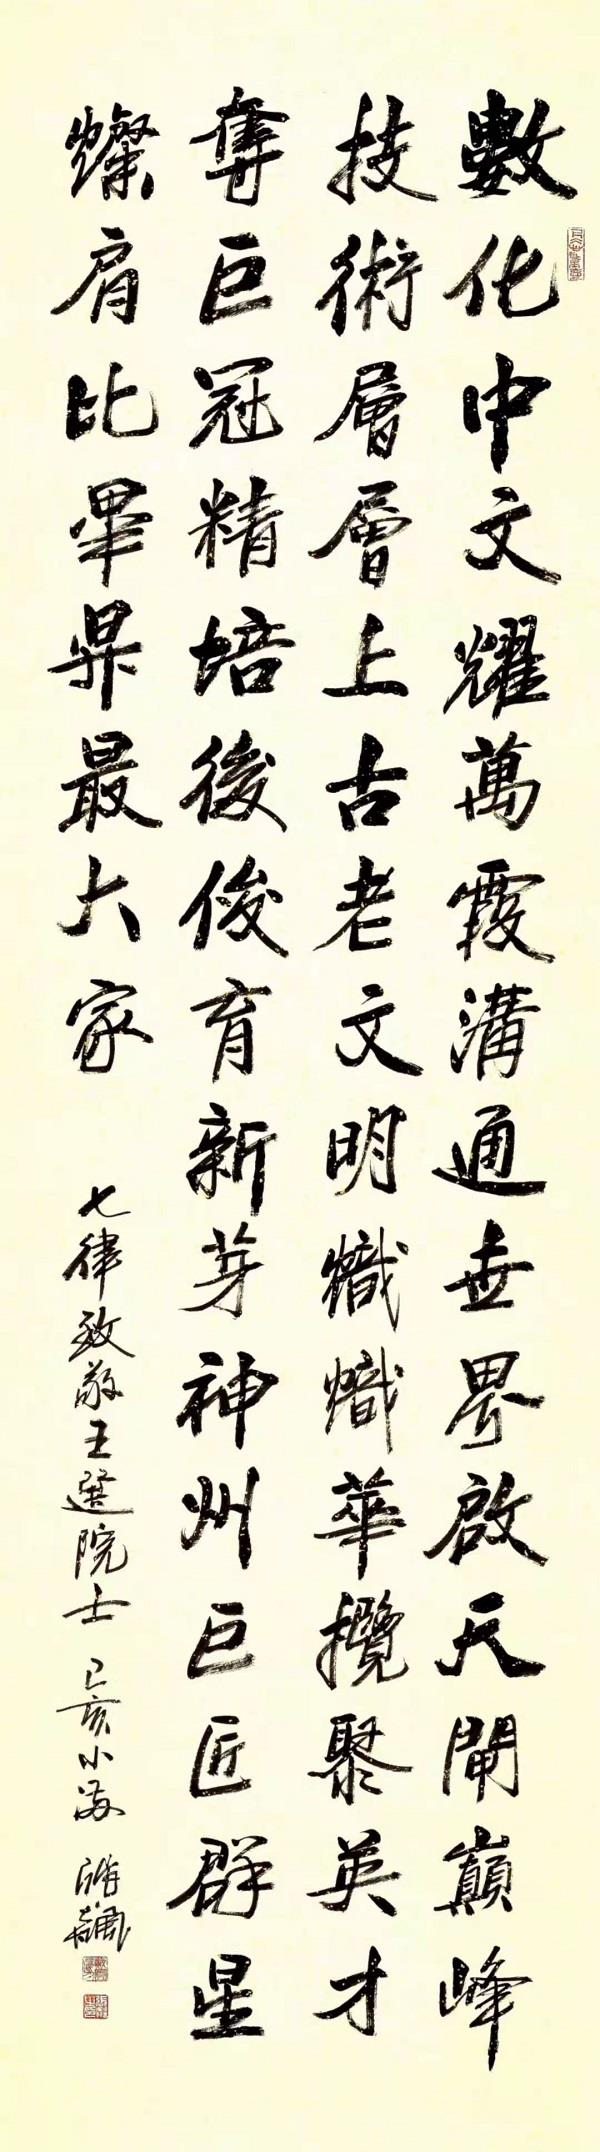 數化中文耀萬霞溝通世界啟天閘巔峰
技術層層上古老文明熾熾華攬聚英才
奪巨冠精培後俊育新芽神州巨匠群星
燦肩比畢昇最大家
七律致敬王選院士 己亥小海